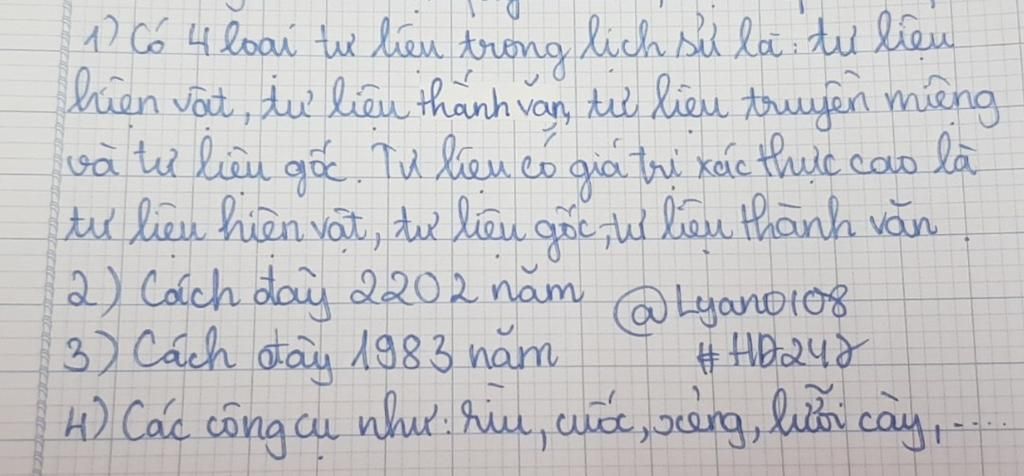 1) Có 4 loại tư liệu trong lịch sử là: tư liệu
hiện vật, tư liệu thành văn, tư liệu truyền miệng
và tư liệu gốc. Tư liệu có giá trị xác thực cao là
tư liệu hiện vật, tư liệu gốc, tư liệu thành văn.
2) Cách đây 2202 năm @Lyan0108
3) Cách đây 1983 năm
4) Các công cụ như: rìu, cuốc, xẻng, lưỡi cày,....